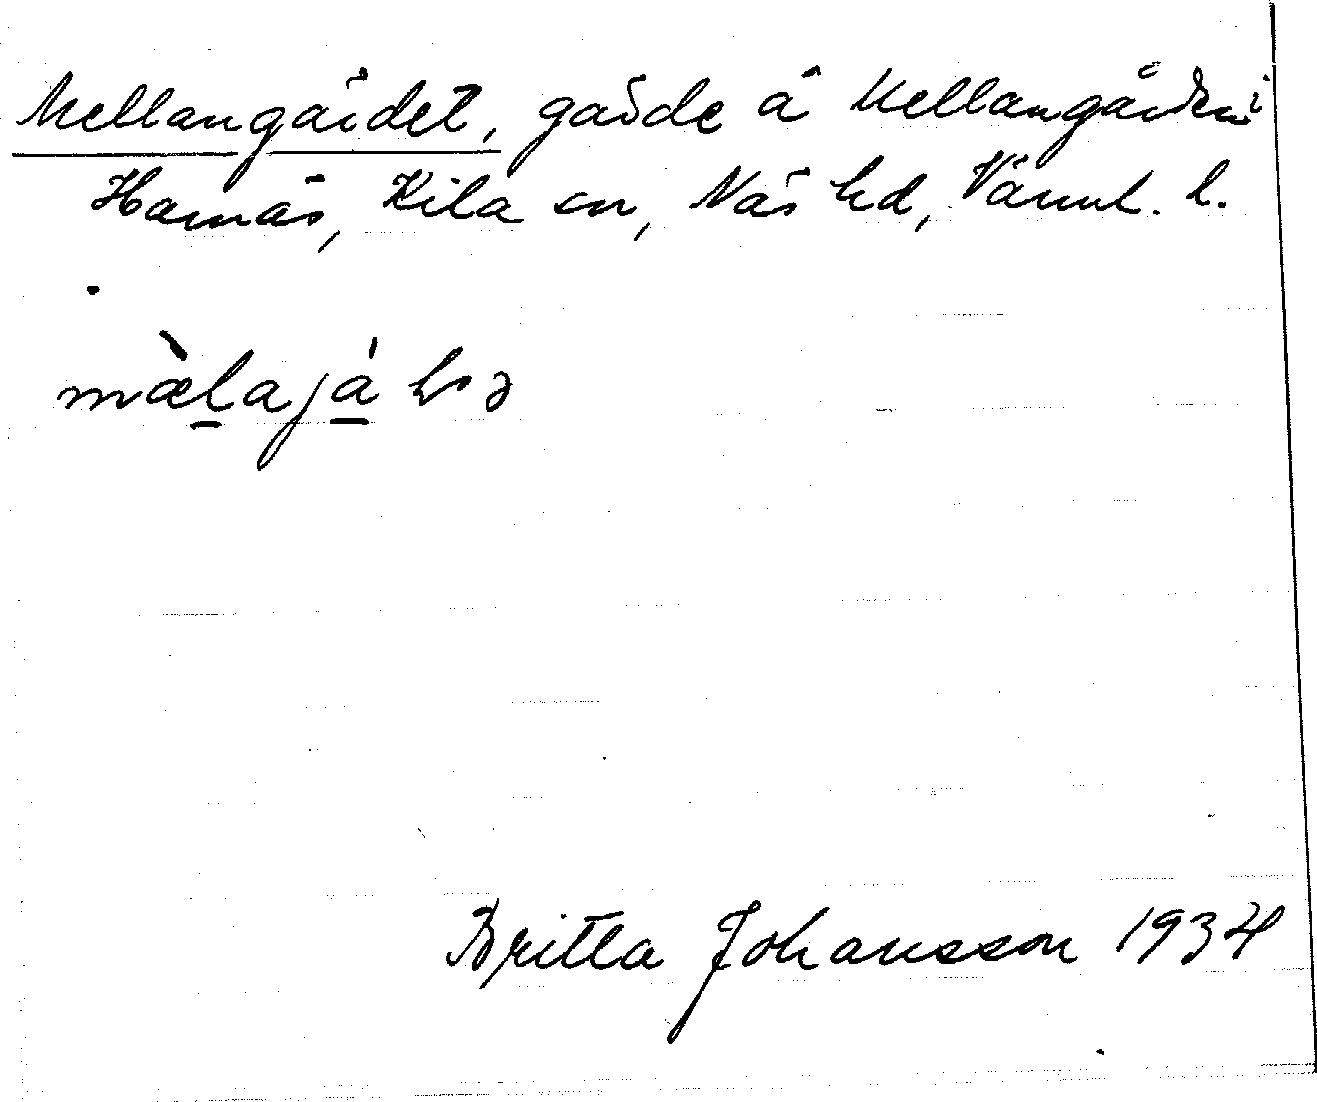 Mellangärdet, gärde å Mellangården i
Hamnäs, Kila sn, Näs hd, Värml. l.
Britta Johansson 1934